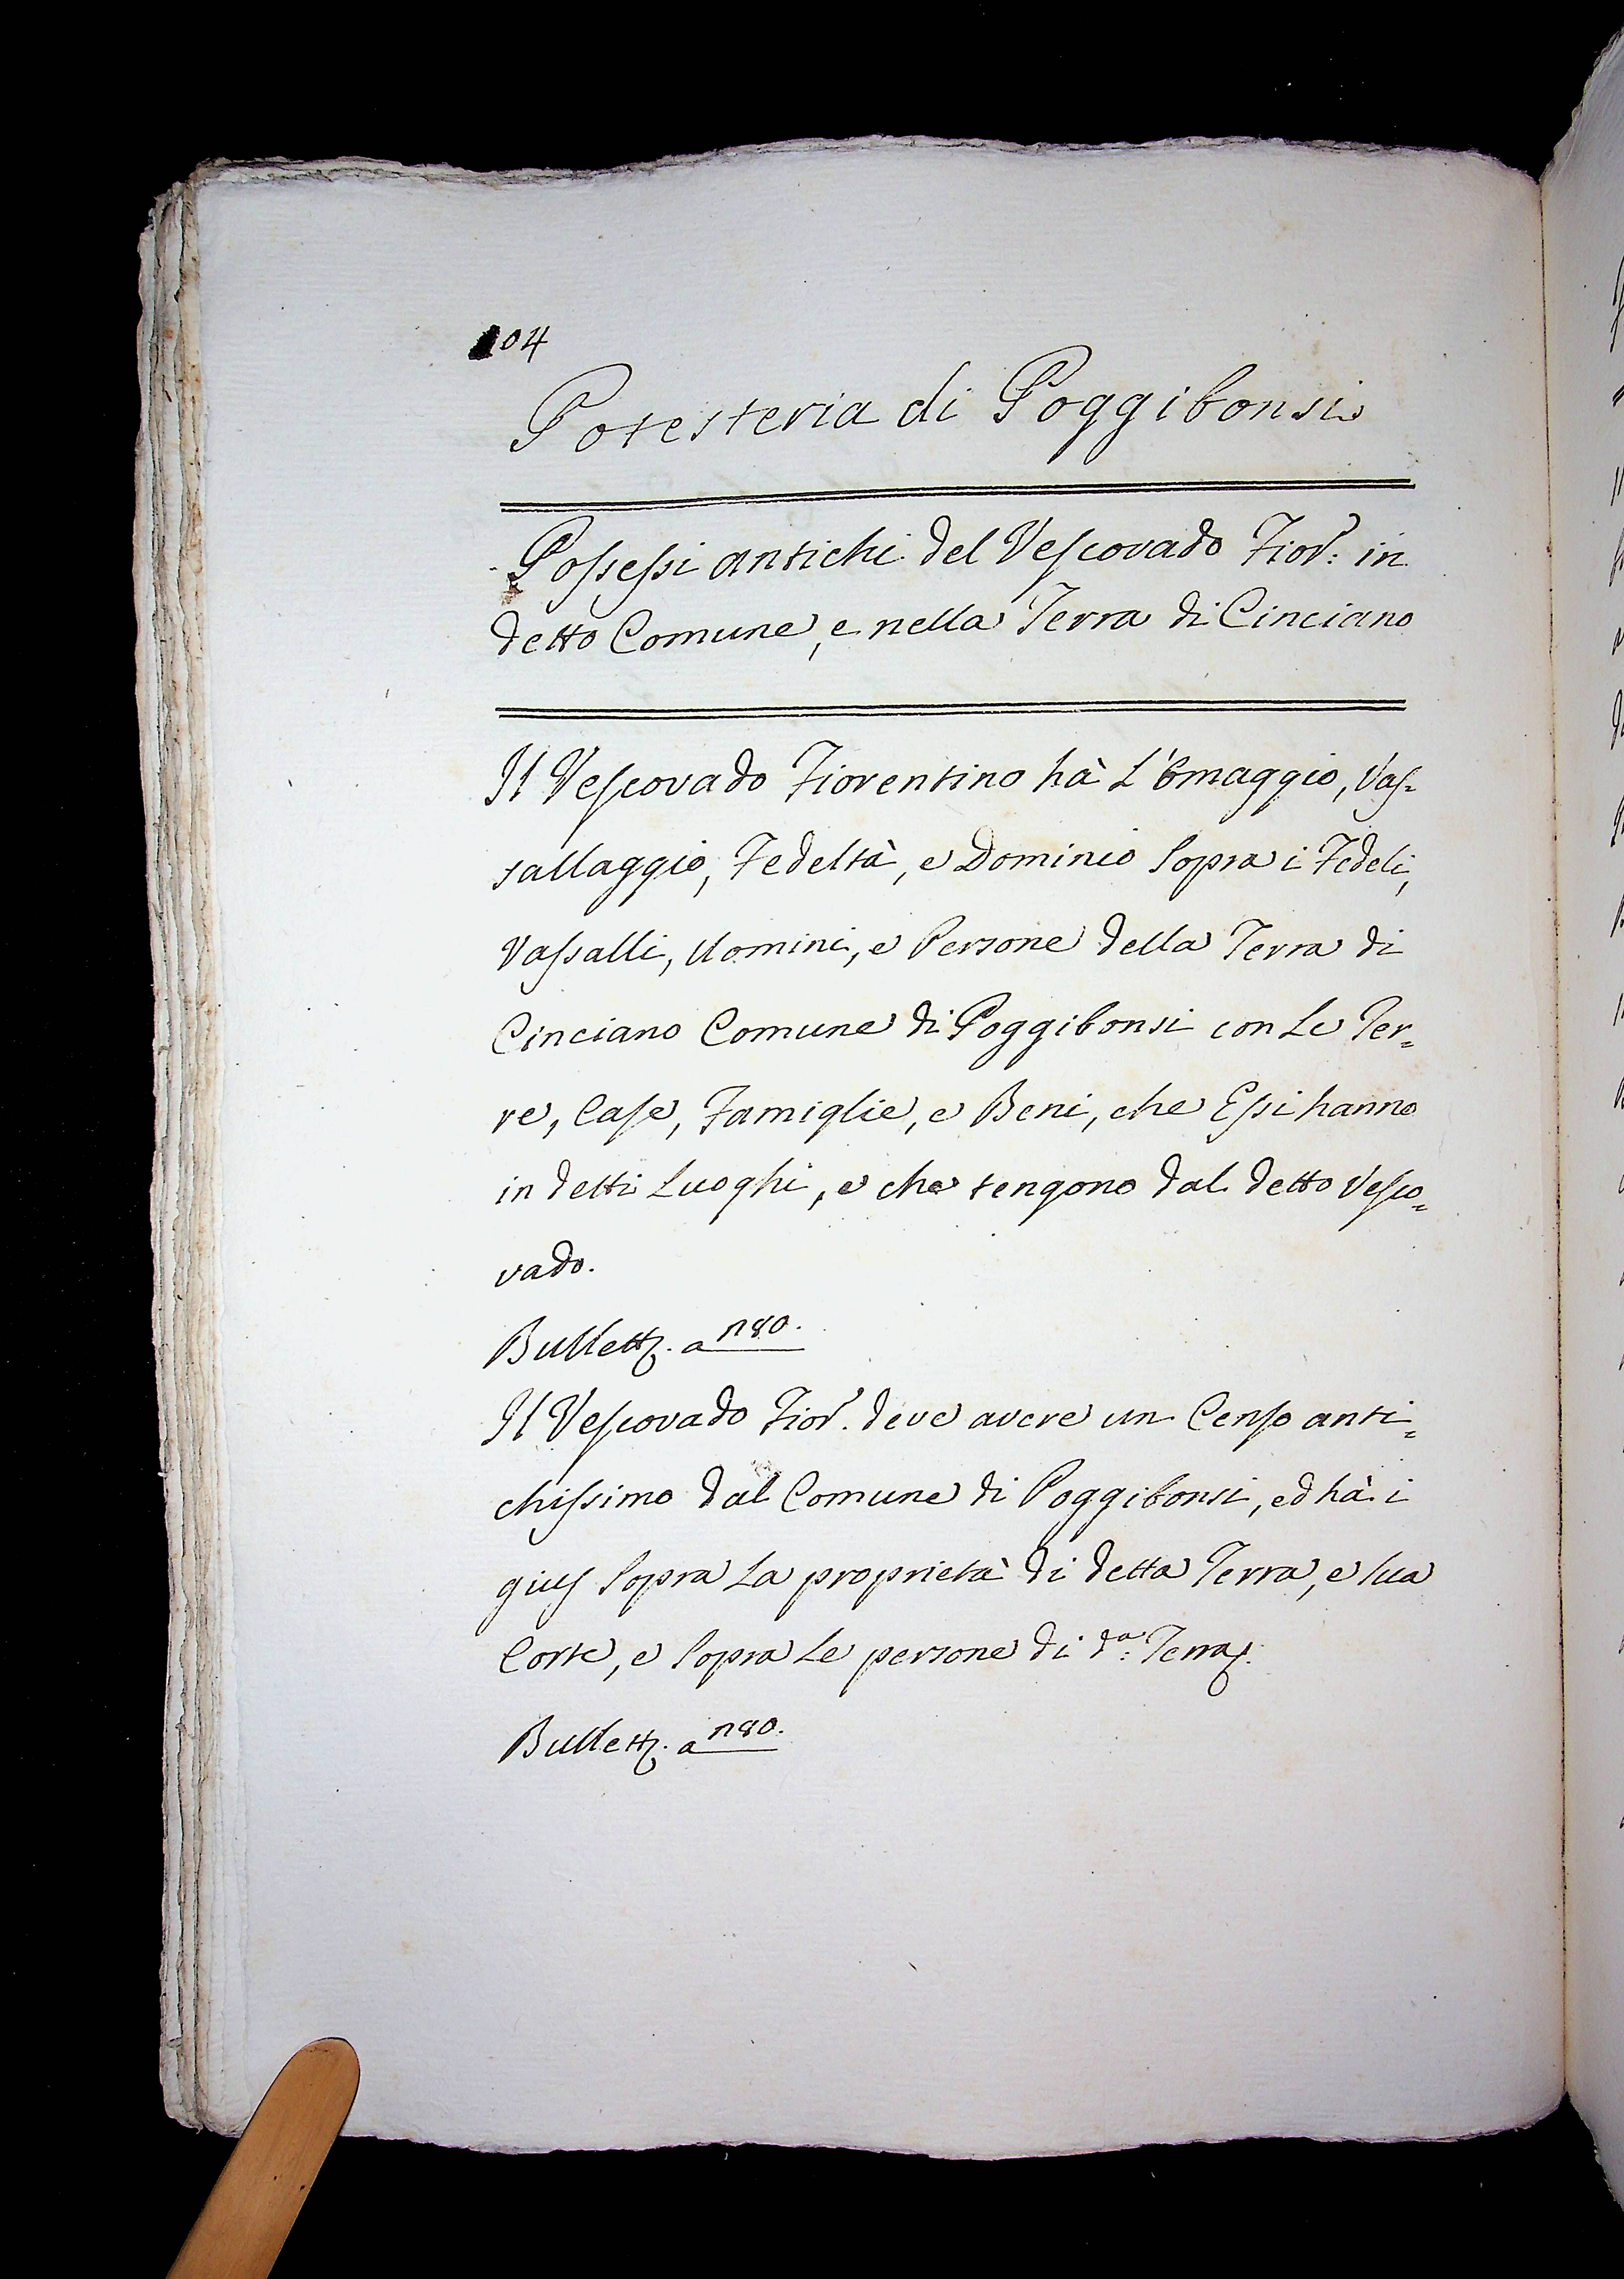 104
Potesteria di Poggibonsi
Possessi antichi del Vescovado Fior: in
detto Comune, e nella Terra di Cinciano
Il Vescovado Fiorentino hà L'Omaggio, Vas=
sallaggio, Fedeltà, e Dominio Sopra i Fedeli,
Vassalli, Uomini, e Persone della Terra di
Cinciano Comune di Poggibonsi con Le Ter=
re, Case, Famiglie, e Beni, che Essi hanno
in detti Luoghi, e che tengono dal detto Vesco=
vado.
Bullett. a 180.
Il Vescovado Fior. deve avere un Censo anti=
chissimo dal Comune di Poggibonsi, ed hà i
gius Sopra La proprietà di detta Terra, e Sua
Corte, e Sopra Le persone di d.a: Terra.
Bullett. a 180.